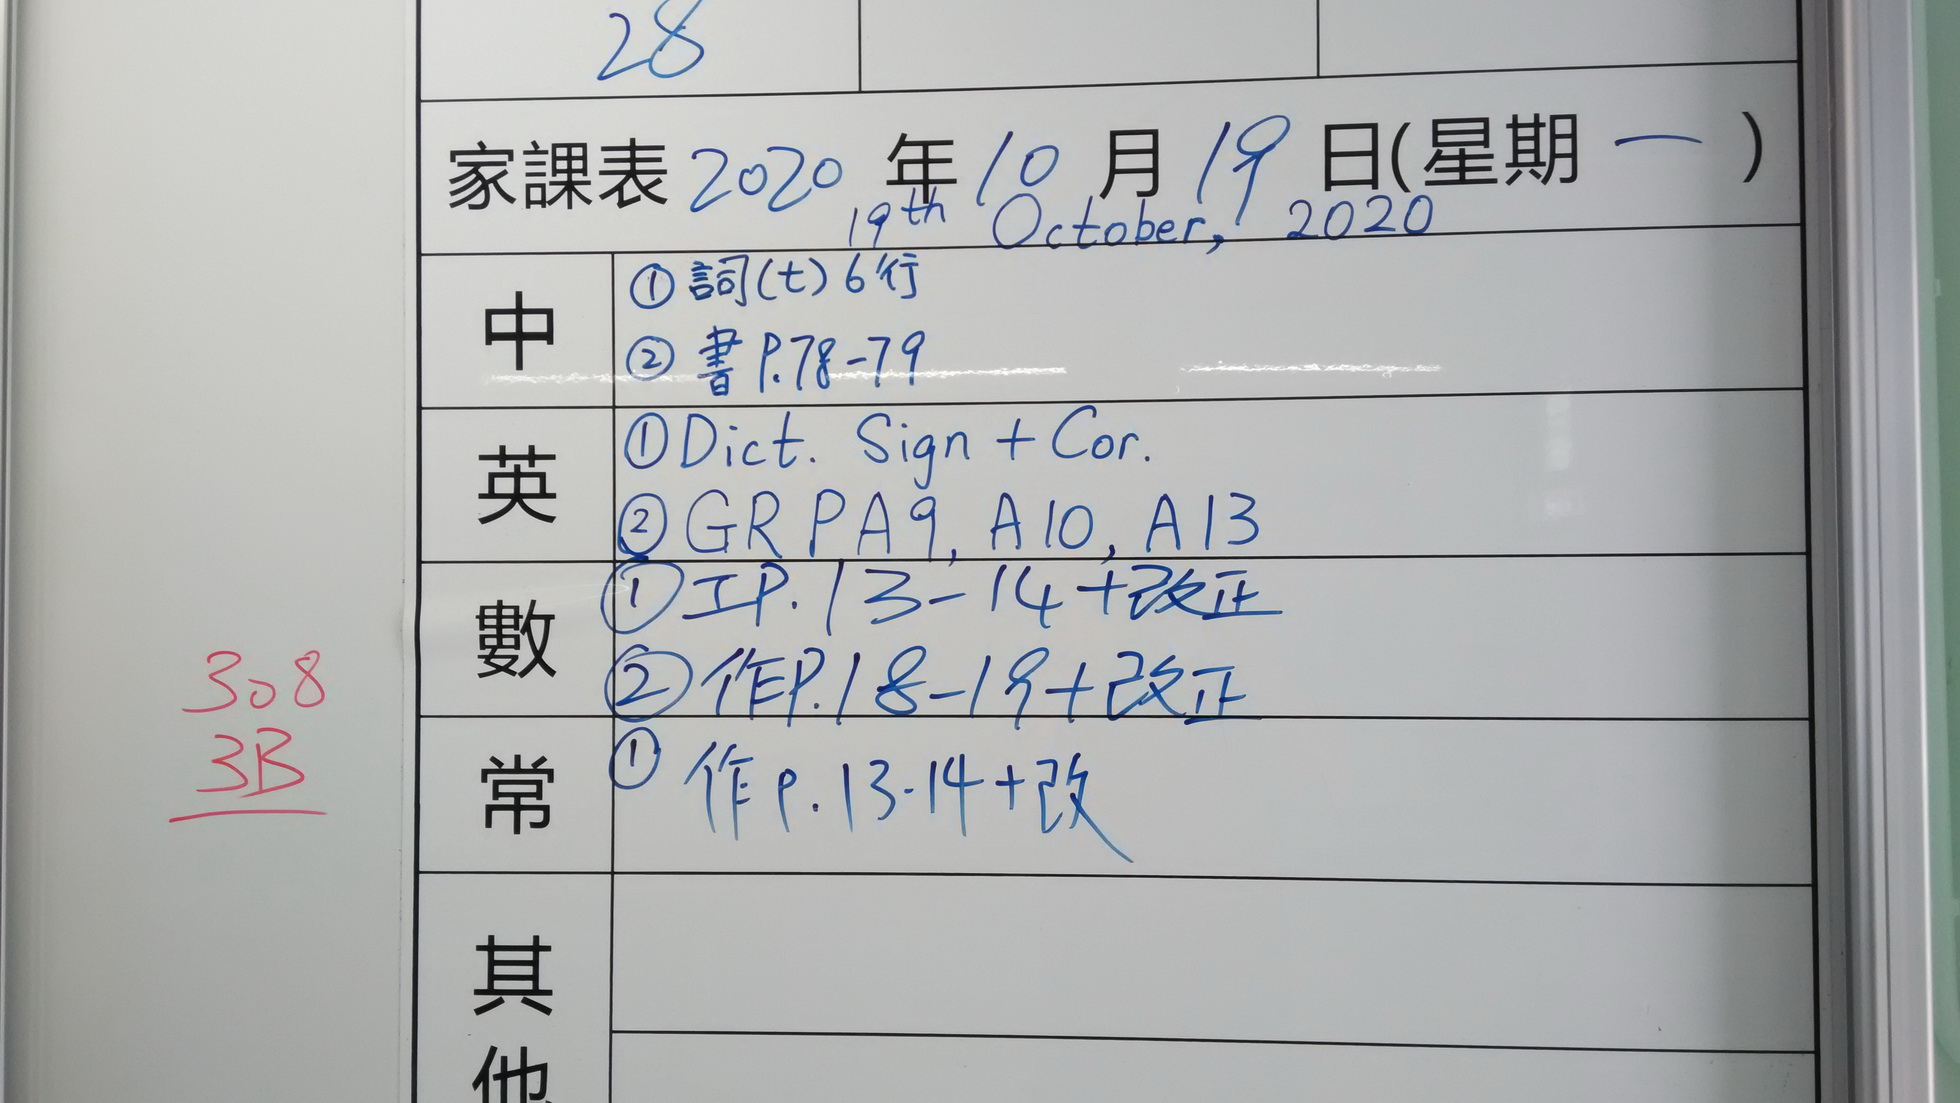 28
家課表 2020 年 10 月 19 日(星期 一 )
19th October, 2020
中
① 詞(七) 6行
② 書 P.78-79
英
① Dict. Sign + Cor.
② GR P A9, A10, A13
數
① 工P.13-14+改正
② 作P.18-19+改正
常
① 作 P.13-14+改
其他
308
3B